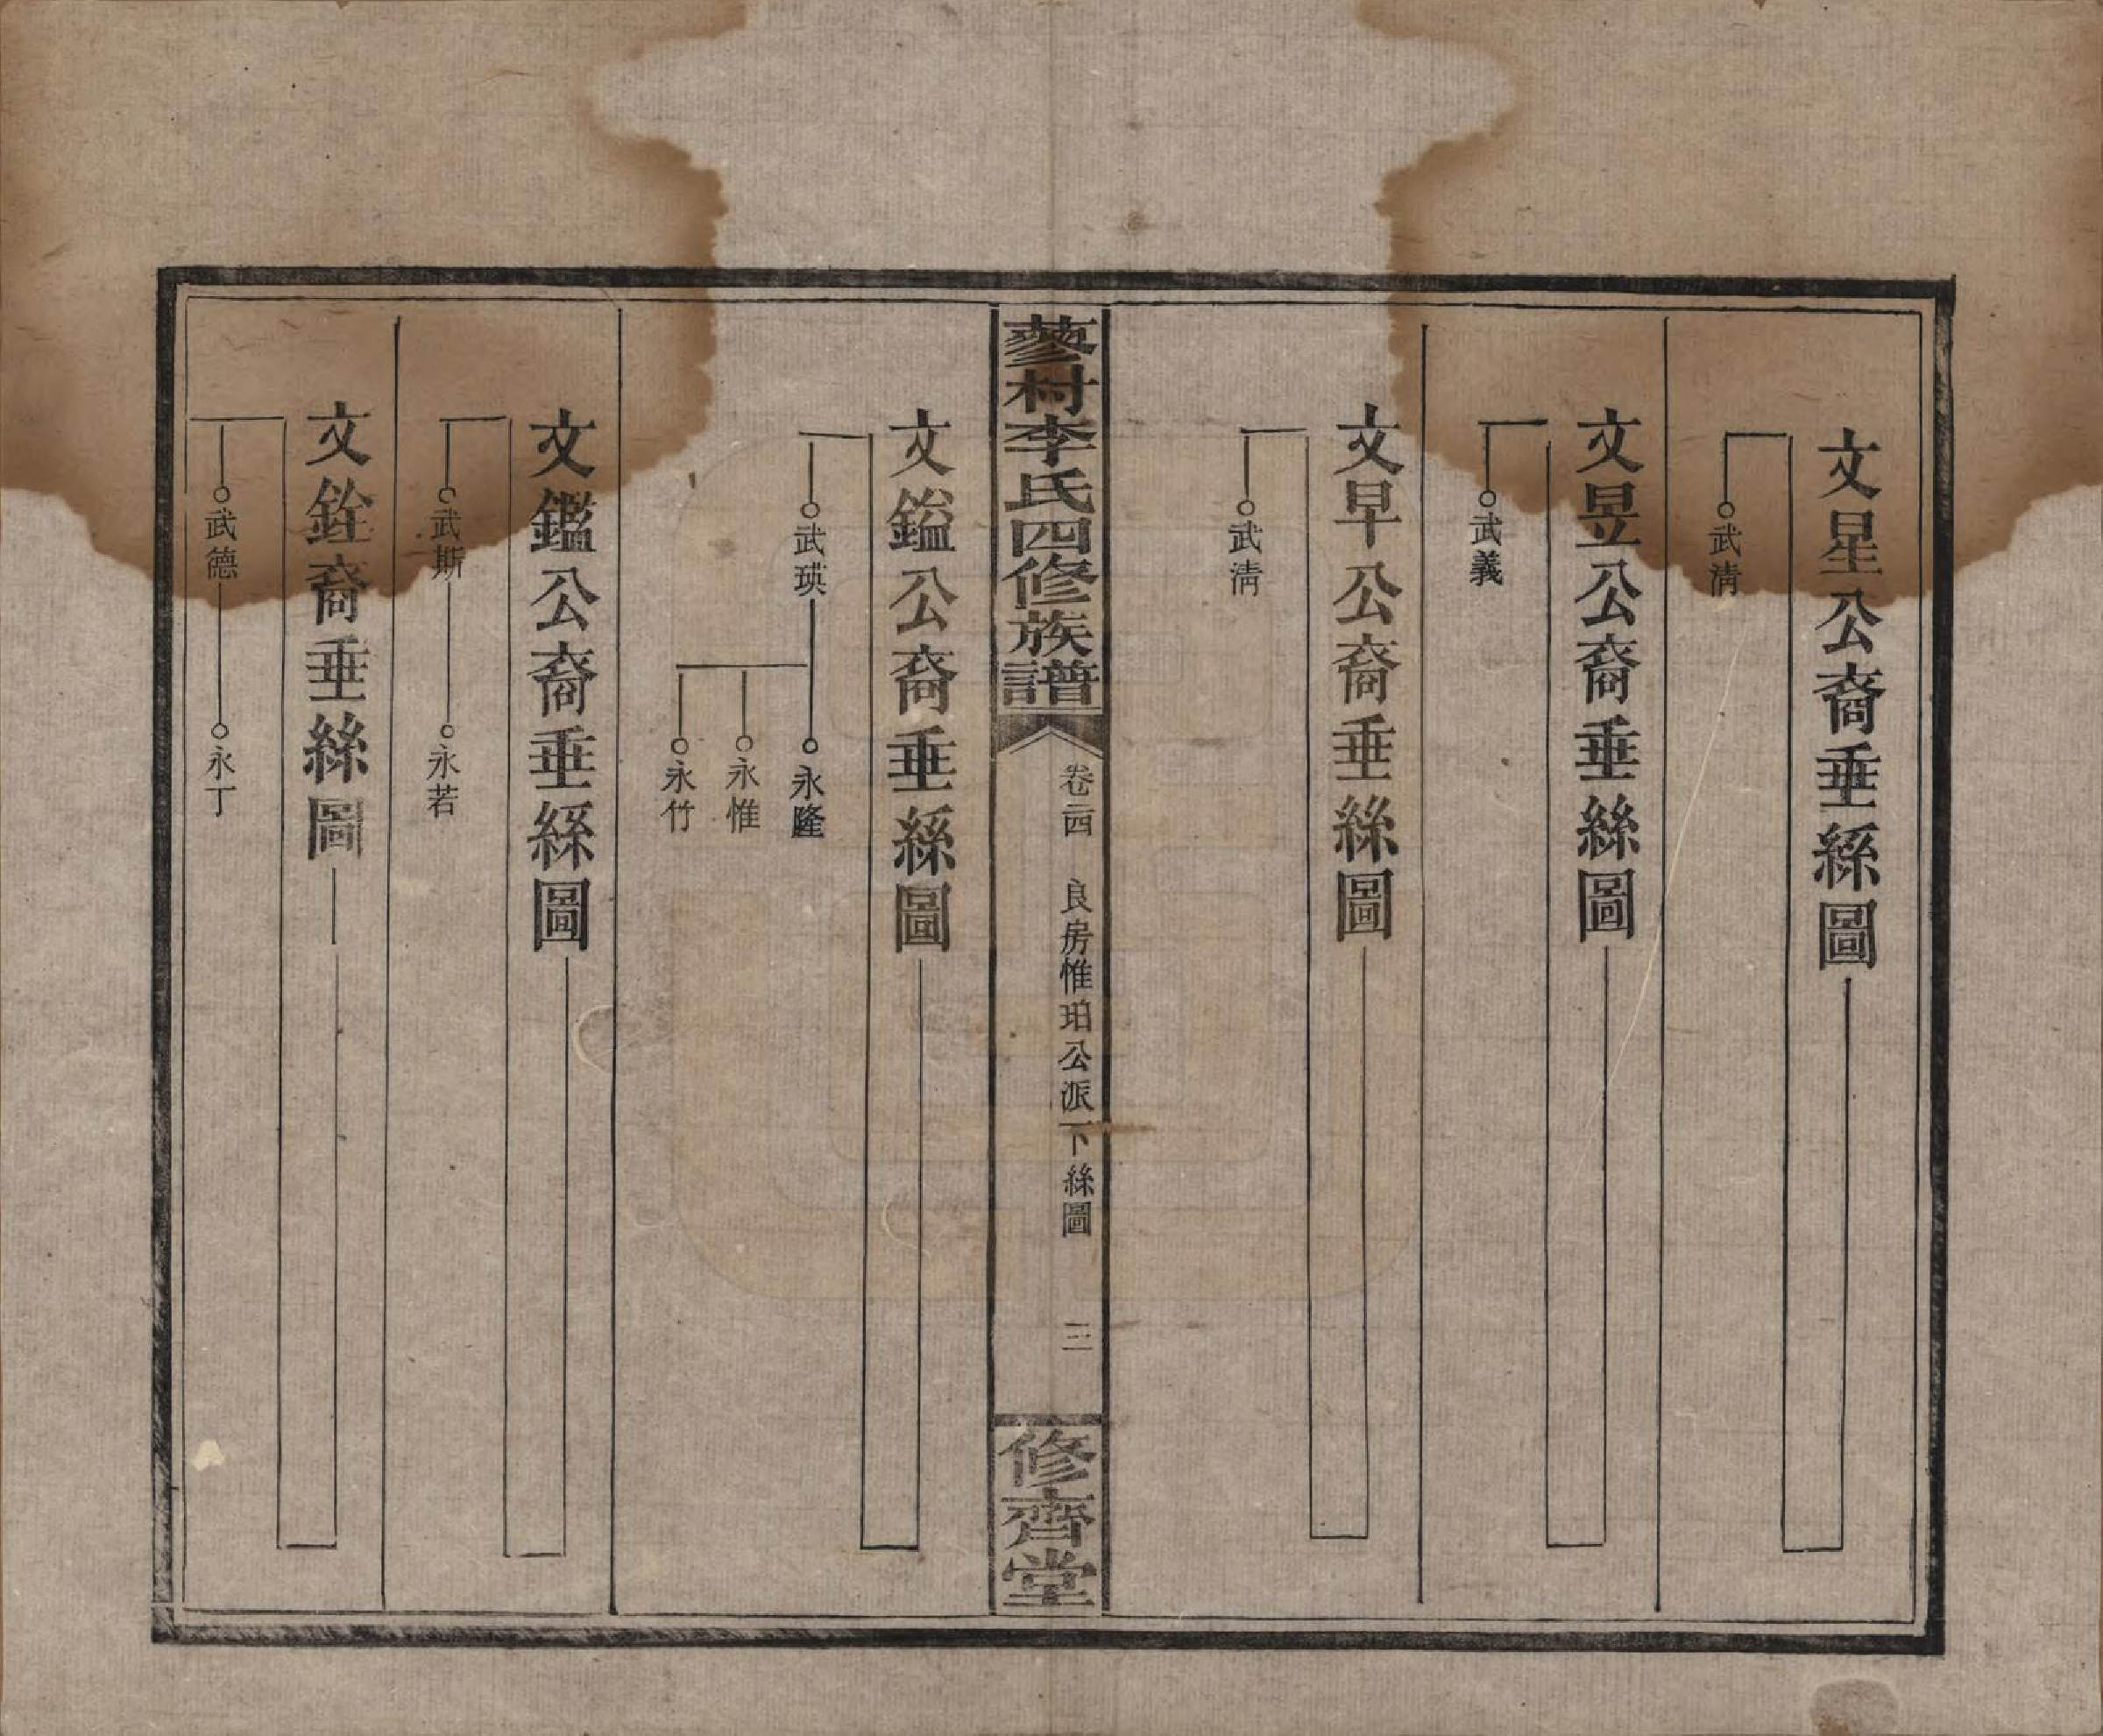 文星公裔垂絲圖
武清
文昱公裔垂絲圖
武義
文早公裔垂絲圖
武清
蓼村李氏四修族譜
卷四 良房惟珀公派下絲圖 三
修齊堂
文鎰公裔垂絲圖
武瑛
永隆
永惟
永竹
文鑑公裔垂絲圖
武斯
永若
文銓裔垂絲圖
武德
永丁